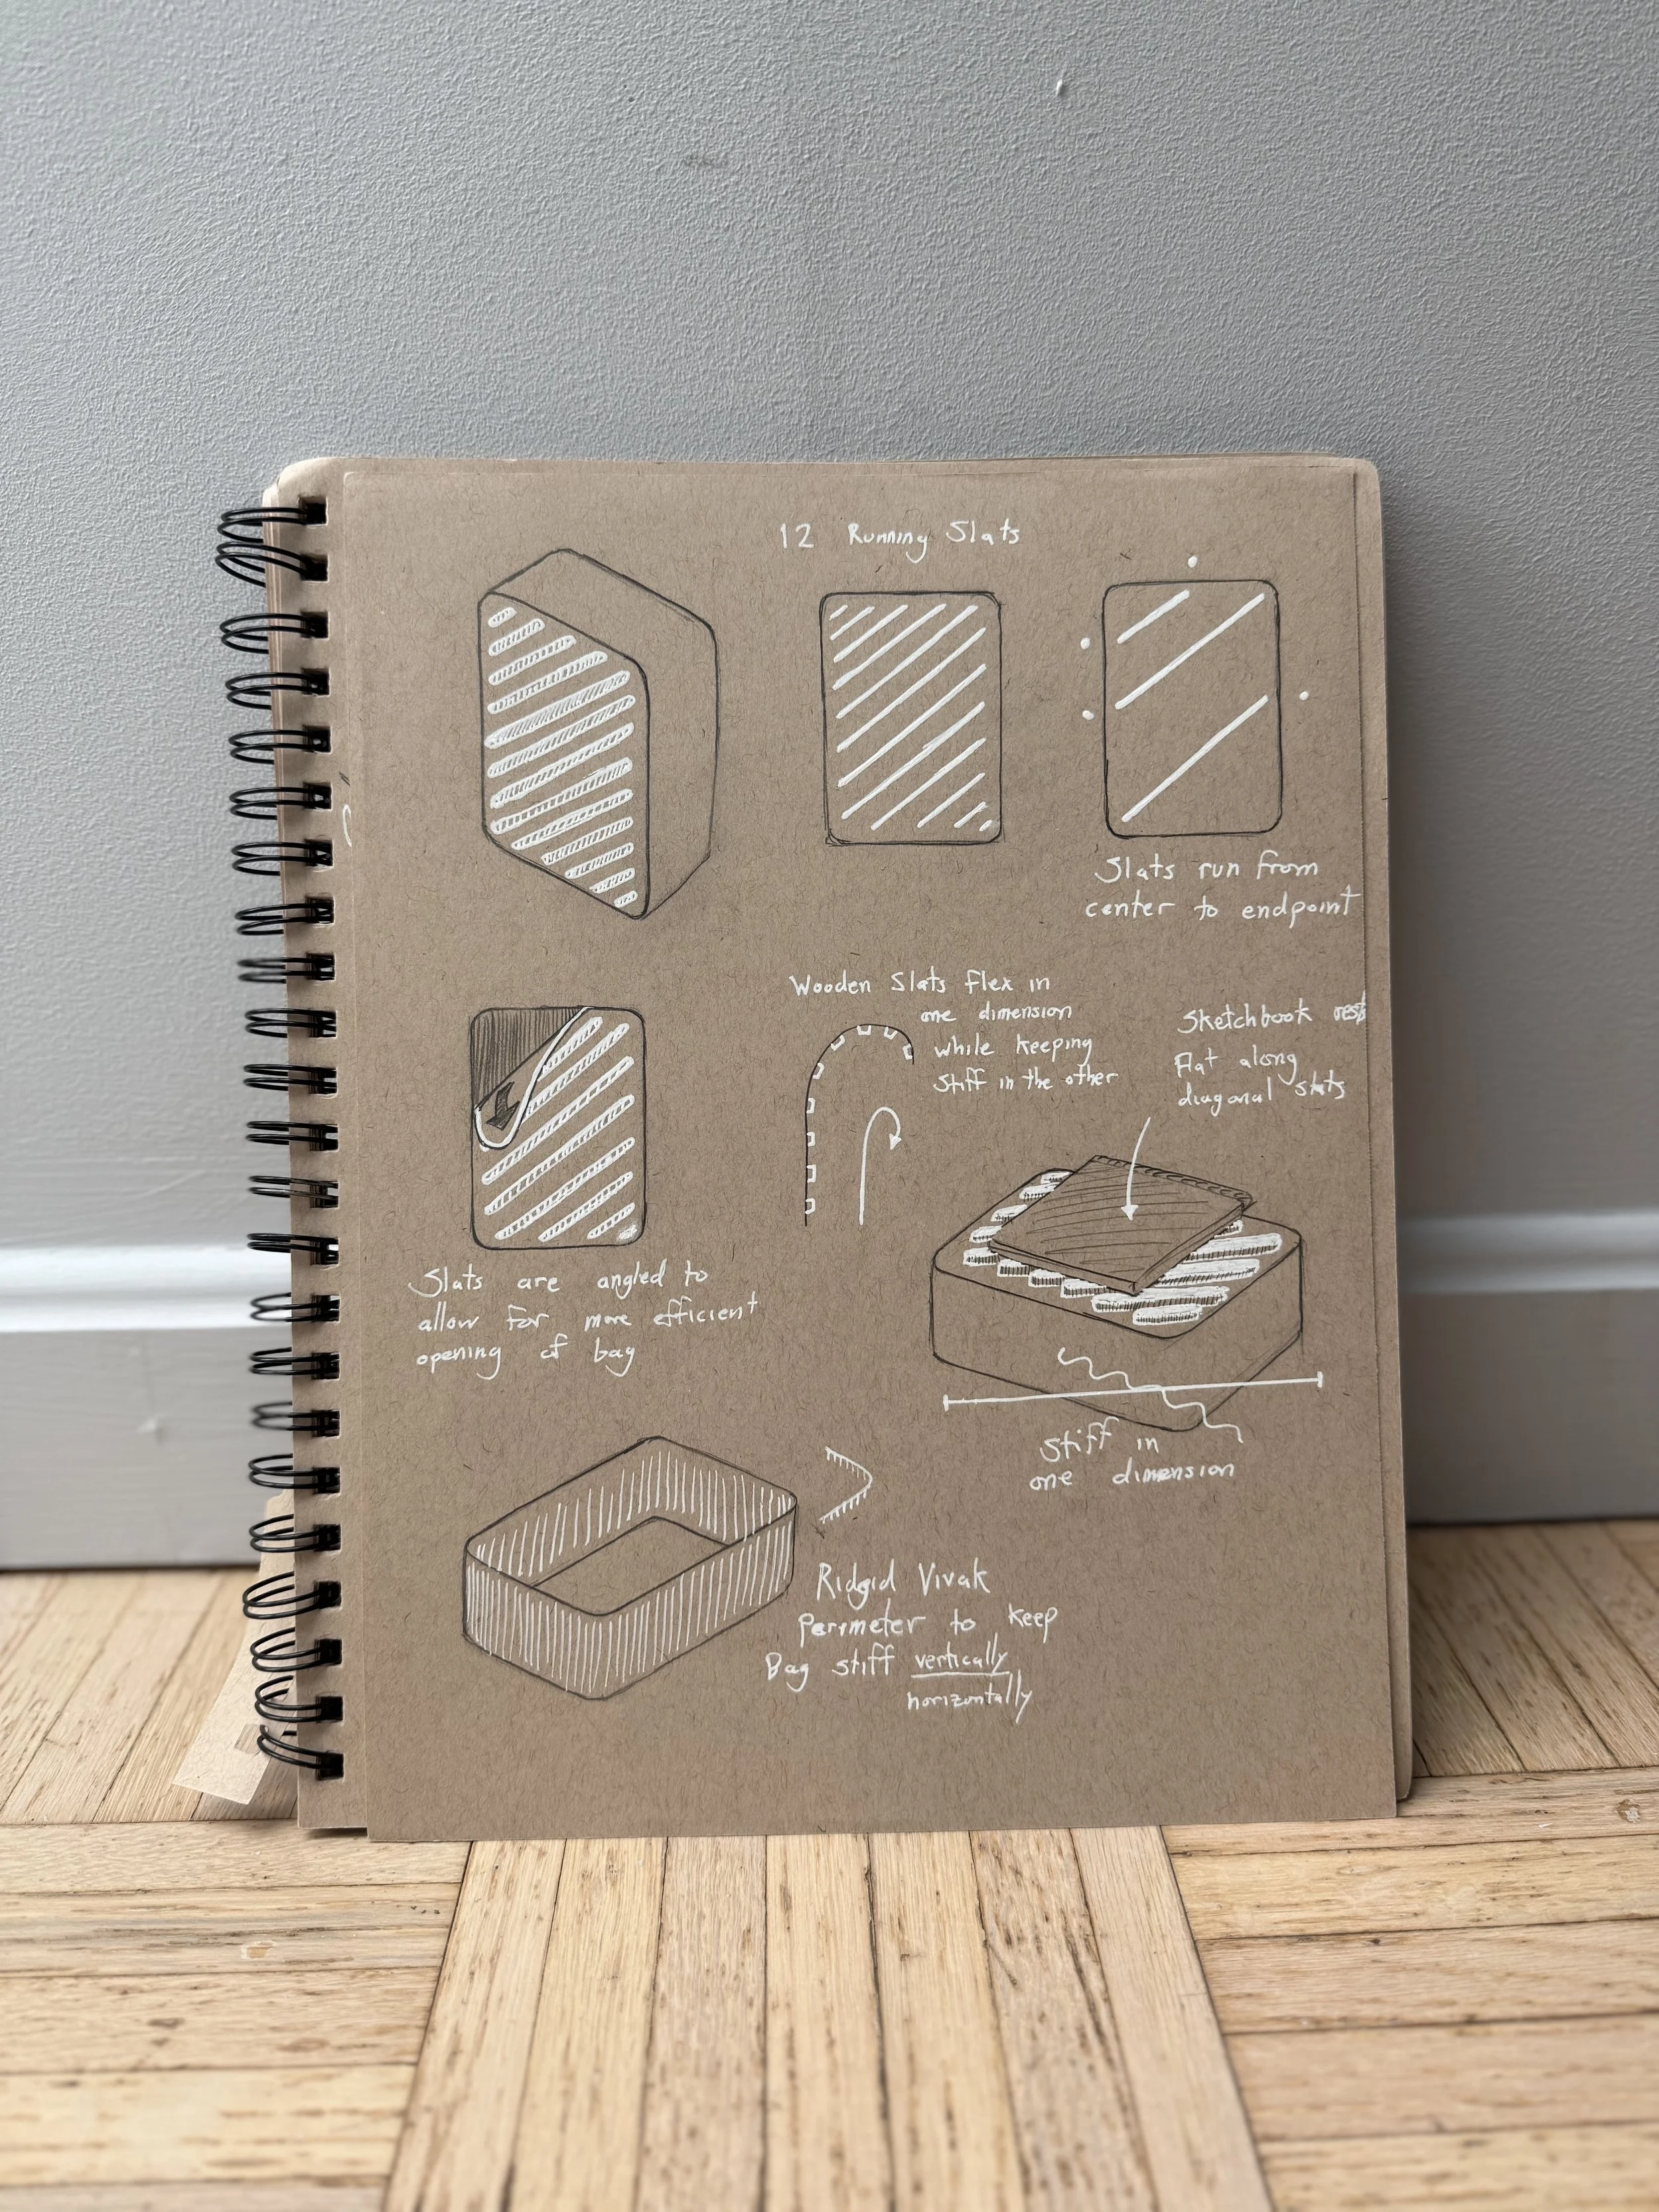 12 Running Slats
Slats run from
center to endpoint
Wooden Slats flex in
one dimension
while keeping
stiff in the other
Sketchbook rests
flat along
diagonal slats
Slats are angled to
allow for more efficient
opening of bag
Stiff in
one dimension
Ridgid Vivak
Perimeter to keep
Bag stiff vertically
horizontally